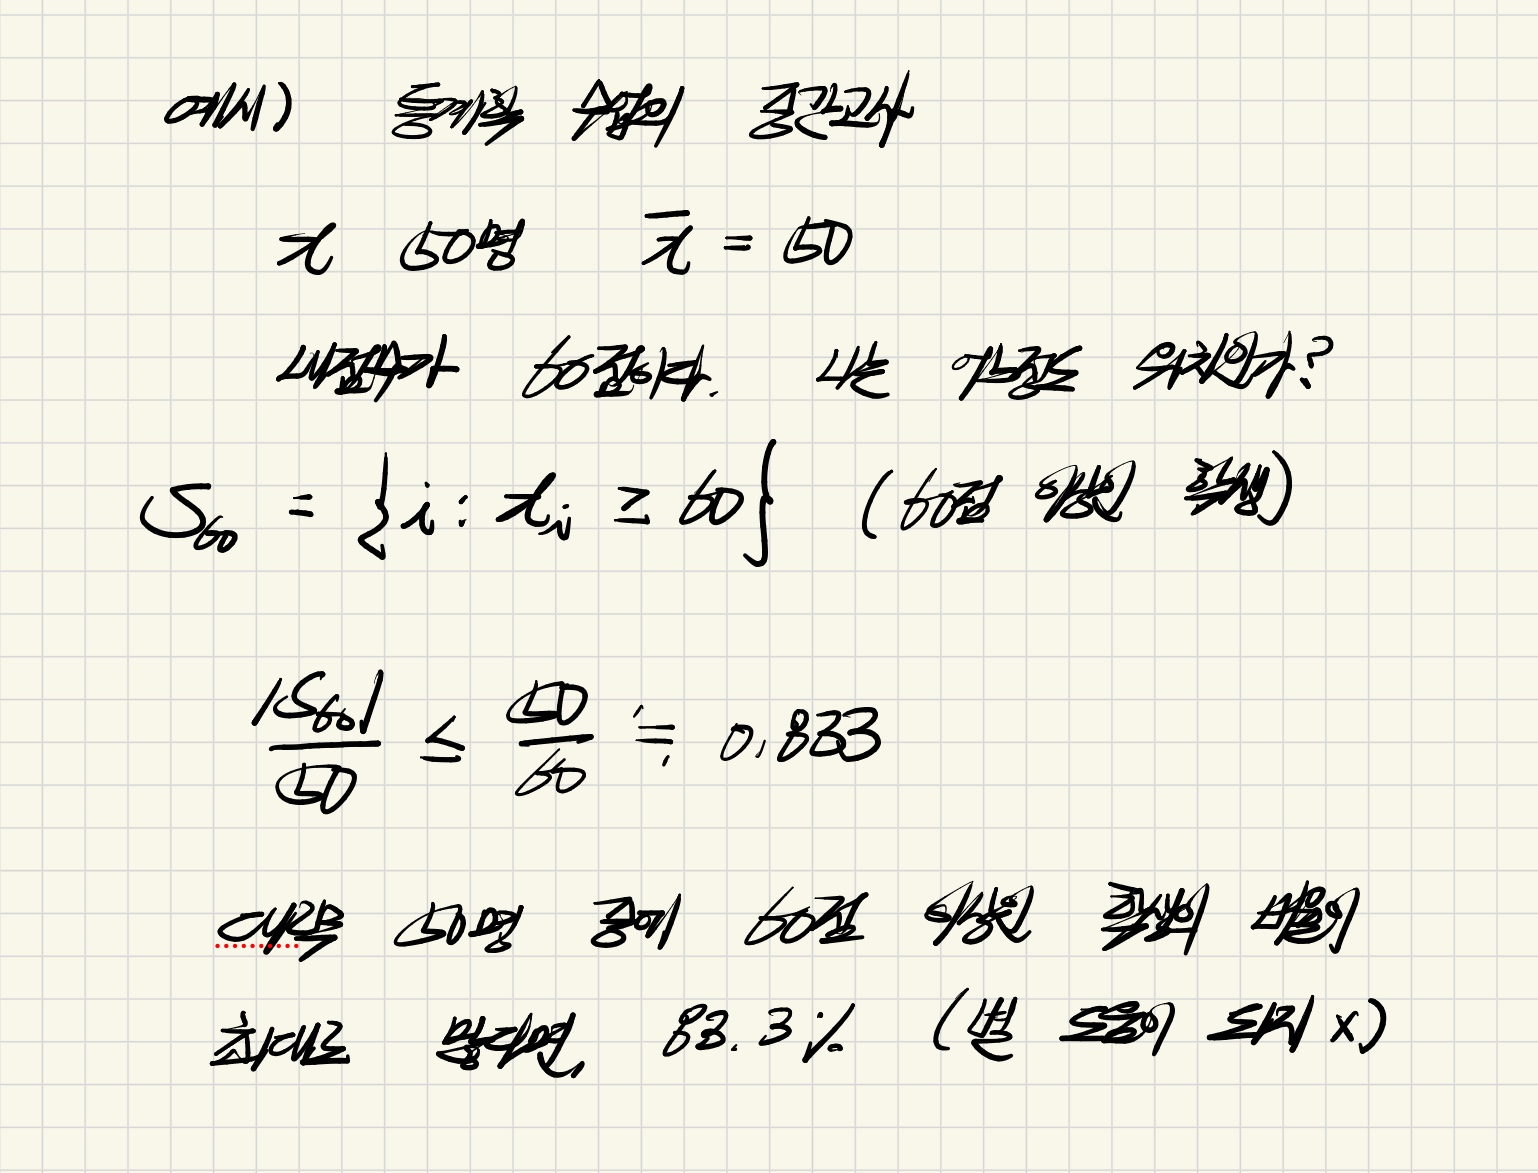 예시) 통계학 수업의 중간고사
x 50명 x̄ = 50
내점수가 60점이다. 나는 어느정도 위치인가?
S₆₀ = {i : xᵢ ≥ 60} (60점 이상인 학생)
|S₆₀|/50 ≤ 50/60 ≒ 0.833
대략 50명 중에 60점 이상인 학생의 비율이
최대로 많다면, 83.3% (별 도움이 되지 x)